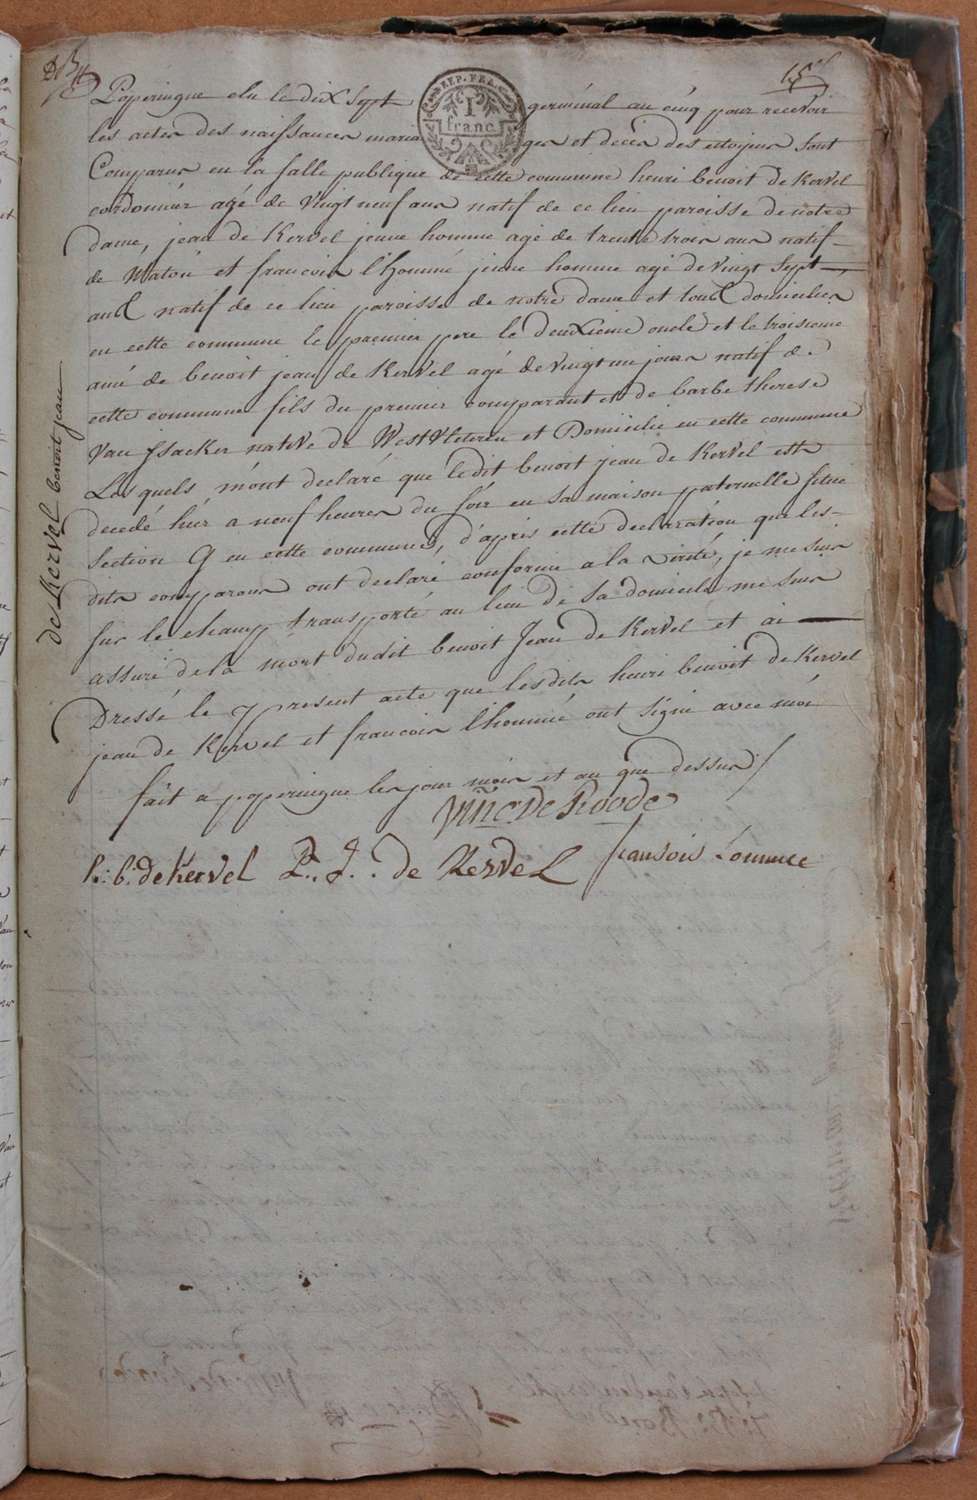 15
REP. FRA.
1
franc
Poperingue elu le dix sept germinal an cinq pour recevoir
les actes des naissances mariages et décès des citoyens sont
Comparus en la salle publique de cette commune henri benoit de Kervel
cordonnier agé de vingt neuf ans natif de ce lieu paroisse de notre
dame, jean de Kervel jeune homme agé de trente trois ans natif
de Watou et francois l'homme jeune homme agé de vingt sept
ans natif de ce lieu paroisse de notre dame et tous domiciliés
en cette commune le premier pere le deuxieme oncle et le troisieme
ami de benoit jean de Kervel agé de vingt un jours natif de
cette commune fils du premier comparant et de barbe therese
van Jsacker native de Westvleteren et Domicilié en cette commune
Lesquels m'ont declaré que ledit benoit jean de Kervel est
decedé hier a neuf heures du soir en sa maison paternelle situé
section G en cette commune, d'après cette declaration que les
dits comparans ont declaré conforme a la verité, je me suis
sur le champ transporté au lieu de sa domicile me suis
assuré de la mort dudit benoit Jean de Kervel et ai
Dressé le present acte que lesdits henri benoit de Kervel
jean de Kervel et francois l'hommé ont signé avec moi
fait a poperingue les jour mois et an que dessus
de Kervel benoit jean
De Roode
h: b: de Kervel P. J. de Kervel fransois Lommee